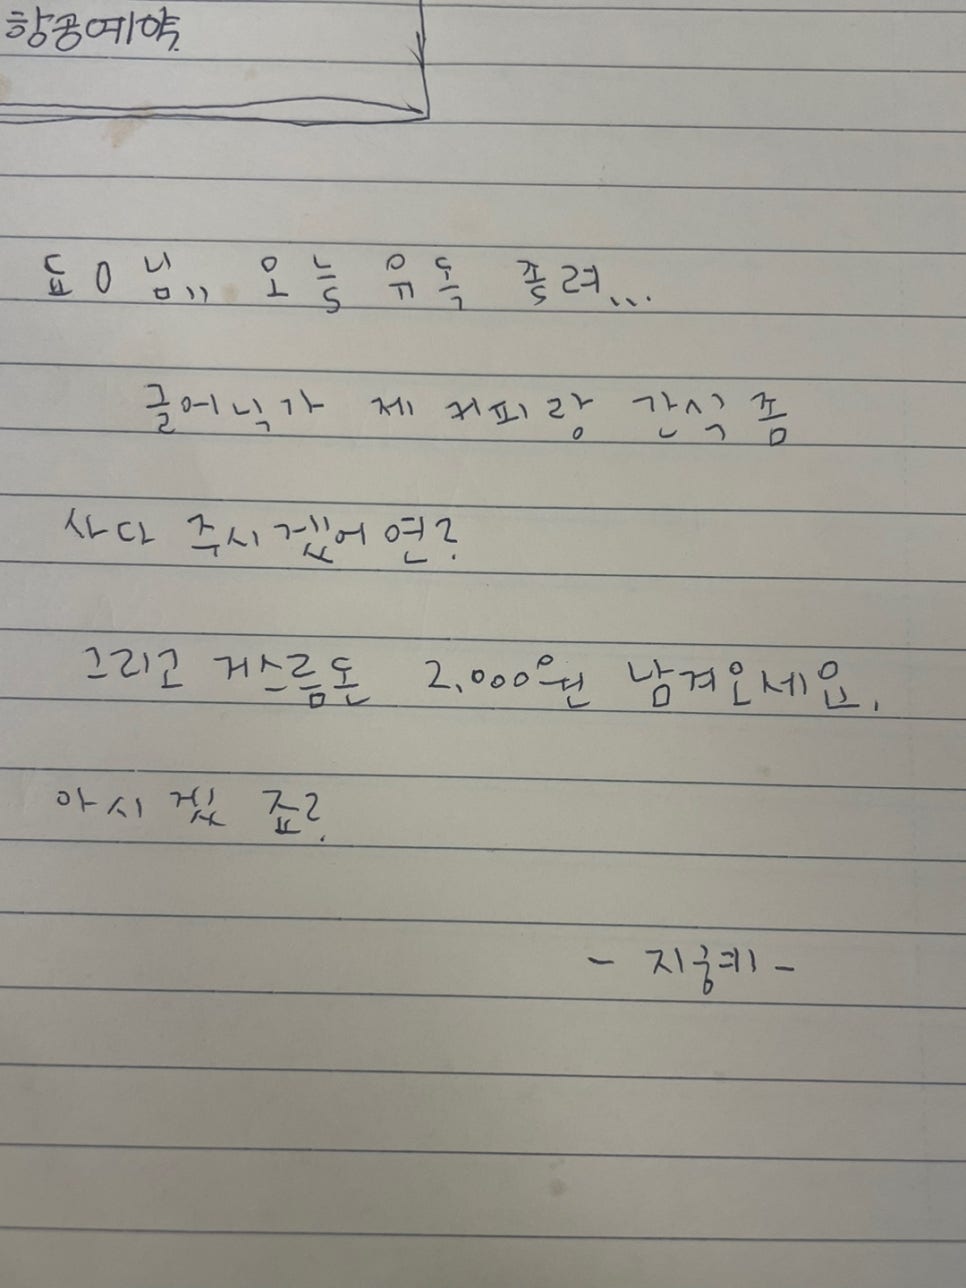 항공예약
오늘 유독 졸려...
제 커피랑 간식 좀
사다 주시겠어연?
그리고 거스름돈 2,000원 남겨오세요.
아시겠죠?